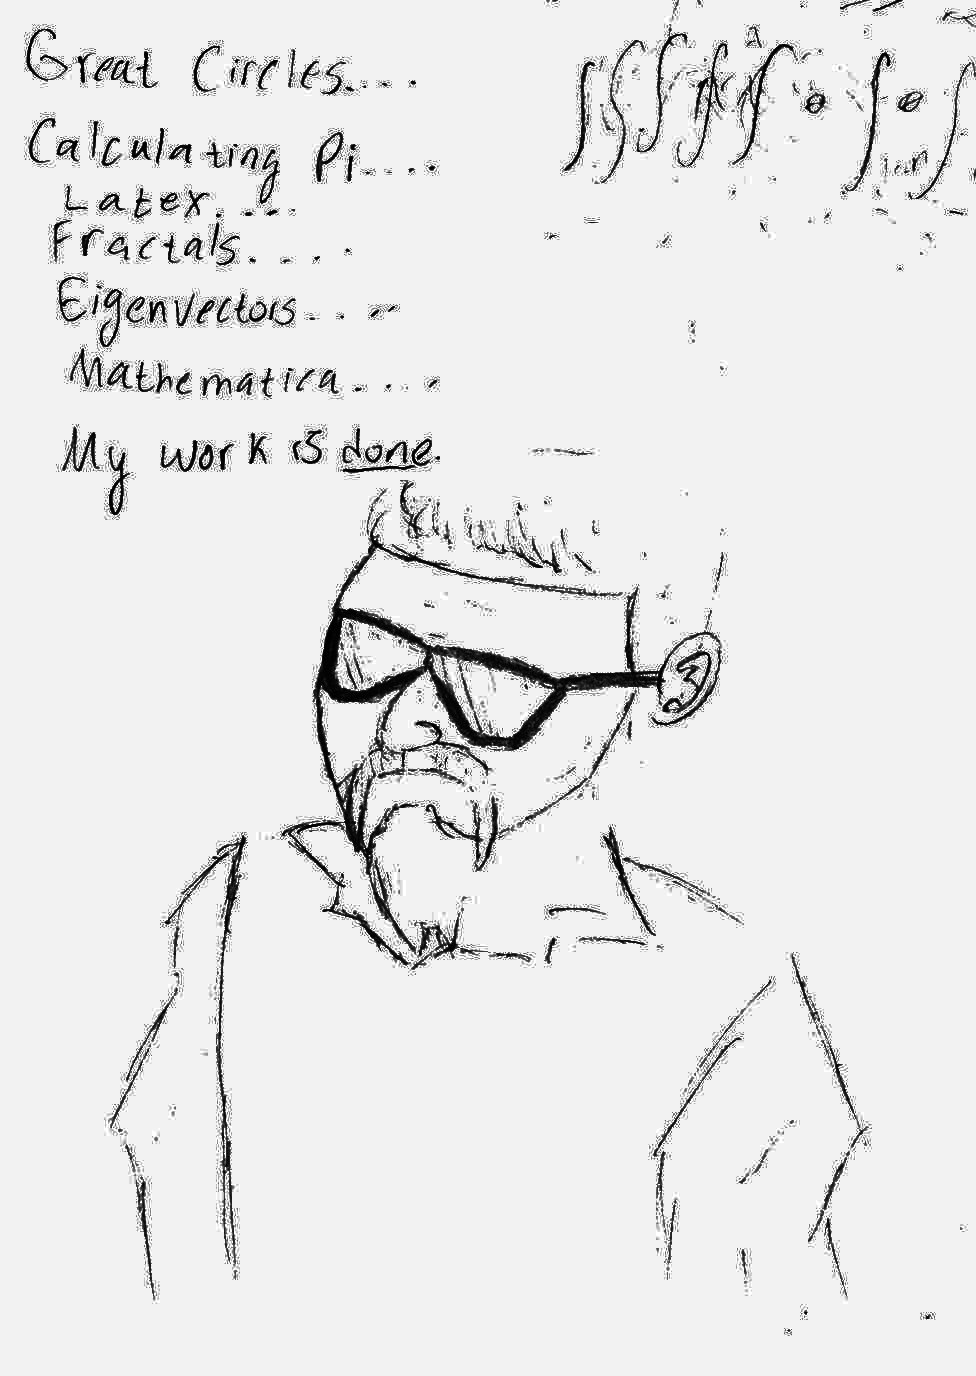 Great Circles....
Calculating Pi....
Latex....
Fractals....
Eigenvectors....
Mathematica....
My work is done.